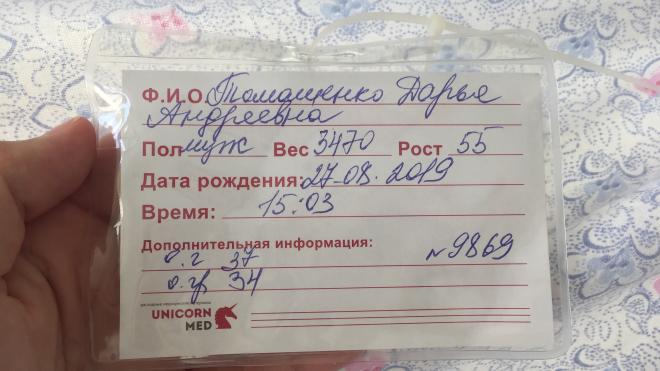 Ф.И.О. Томащенко Дарья
Андреевна
Пол муж Вес 3470 Рост 55
Дата рождения: 27-08.2019
Время: 15:03
Дополнительная информация:
о.г 37 №9869
о.гр 34
UNICORN
MED